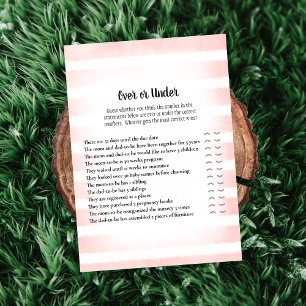 Over or Under
Guess whether you think the number in the
statements below are over or under the correct
numbers. Whoever gets the most correct wins!
There are 32 days until the due date
The mom and dad-to-be have been together for 5 years
The mom and dad-to-be would like to have 3 children
The mom-to-be is 30 weeks pregnant
They waited until 12 weeks to announce
They looked over 50 baby names before choosing
The mom-to-be has 1 sibling
The dad-to-be has 3 siblings
They are registered at 2 places
They have purchased 3 pregnancy books
The mom-to-be reorganized the nursery 3 times
The dad-to-be has assembled 2 pieces of furniture